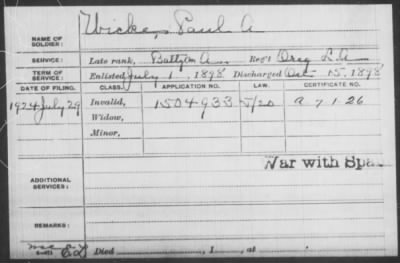 NAME OF SOLDIER: Wicke, Paul A
SERVICE: Late rank, Battry A Reg't Oreg L. A
TERM OF SERVICE: Enlisted July 1, 1898 Discharged Oct 15, 1898
DATE OF FILING. CLASS. APPLICATION NO. LAW. CERTIFICATE NO.
1924 July 29 Invalid, 1504933 5/20 a 7 1 26
Widow,
Minor,
War with Spa
ADDITIONAL SERVICES:
REMARKS:
Died , 1 , at